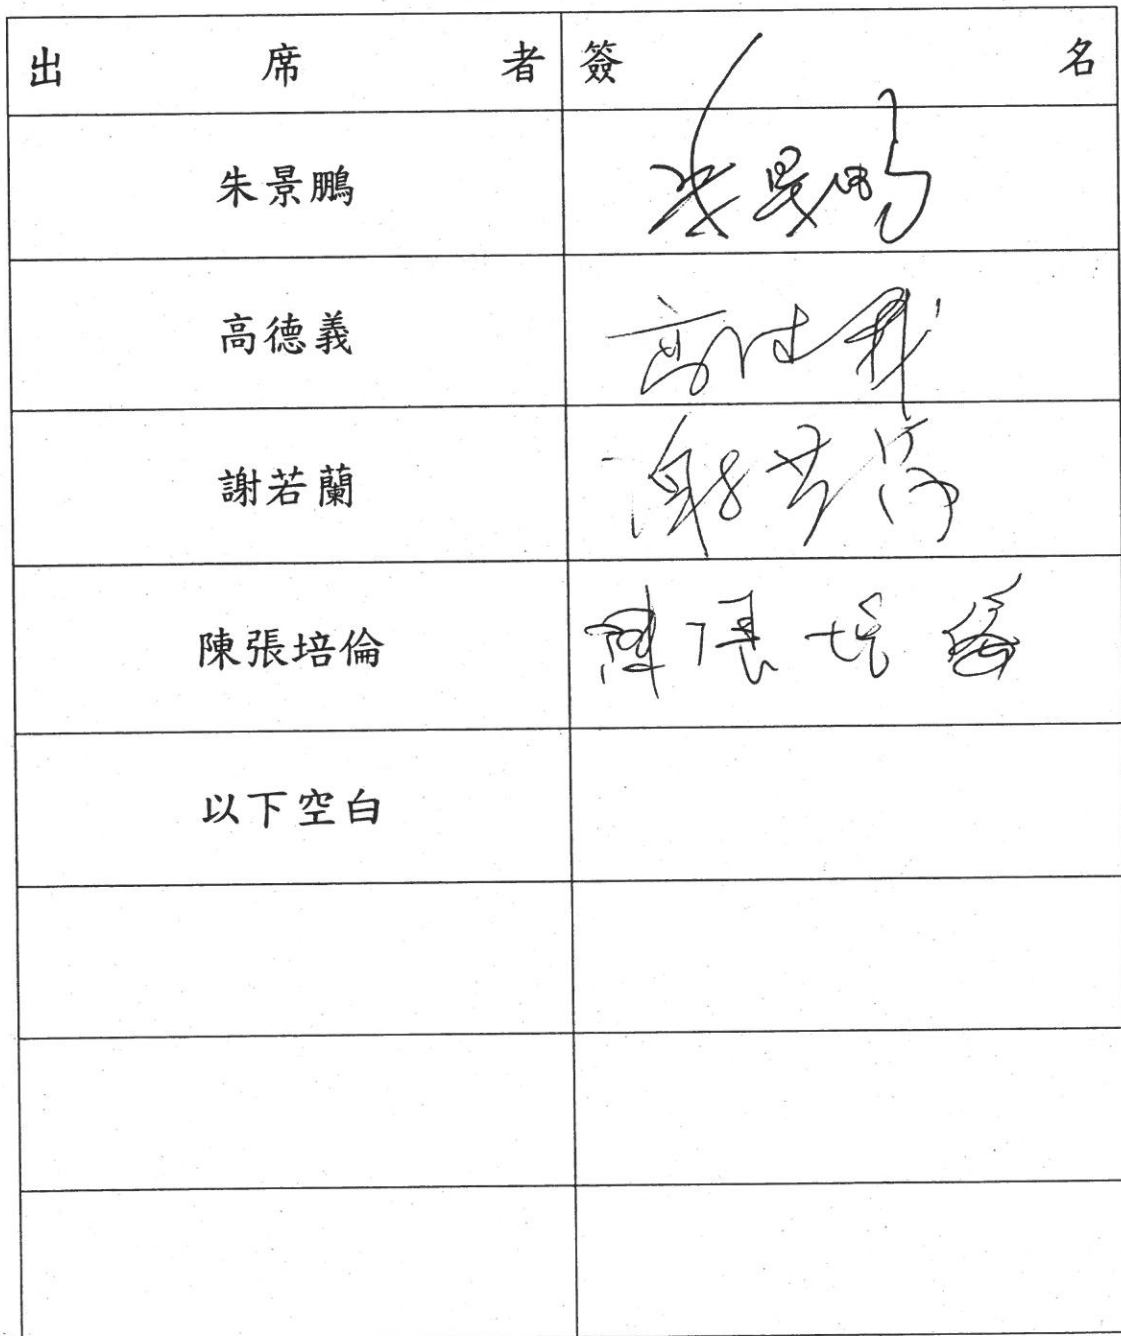 出席者 簽名
朱景鵬 朱景鵬
高德義 高德義
謝若蘭 謝若蘭
陳張培倫 陳張培倫
以下空白